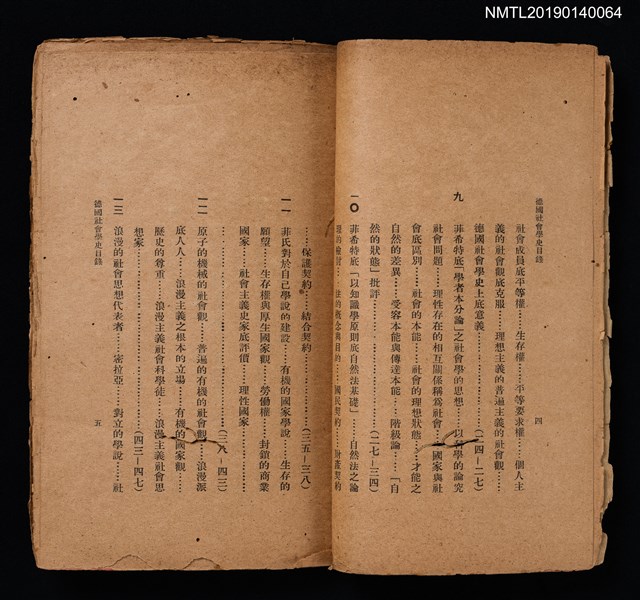 NMTL20190140064
德國社會學史目錄
四
社會成員底平等權……生存權……平等要求權……個人主
義的社會觀底克服……理想主義的普遍主義的社會觀……
德國社會學史上底意義……(二四—二七)
九
菲希特底「學者本分論」之社會學的思想……以哲學的論究
社會問題……理性存在的相互關係稱爲社會……國家與社
會底區別……社會的本能……社會的理想狀態……才能之
自然的差異……受容本能與傳達本能……階級論……「自
然的狀態」批評……(二七—三四)
一〇
菲希特底「以知識學原則底自然法基礎」……自然法之論
理的檢討……法的概念與目的……國民契約……財產契約
……保護契約……結合契約……(三五—三八)
一一
菲氏對於自己學說的建設……有機的國家學說……生存的
願望……生存權與厚生國家觀……勞働權……封鎖的商業
國家……社會主義史家底評價……理性國家……
……(三八—四三)
一二
原子的機械的社會觀……普遍的有機的社會觀……浪漫派
底人人……浪漫主義之根本的立場……有機的國家觀……
歷史的尊重……浪漫主義社會科學徒……浪漫主義社會思
想家……(四三—四七)
一三
浪漫的社會思想代表者……密拉亞……對立的學說……社
德國社會學史目錄
五